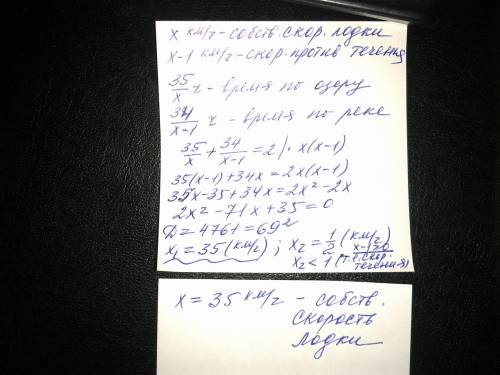 x км/г - собств. скор. лодки
x-1 км/г - скор. против течения
35/x ч - время по озеру
34/x-1 ч - время по реке
35/x + 34/x-1 = 2 | · x(x-1)
35(x-1)+34x = 2x(x-1)
35x-35+34x = 2x²-2x
2x²-71x+35=0
D = 4761 = 69²
x₁ = 35 (км/г) ; x₂ = 1/2 (км/г)
x-1>0
x₂ < 1 (т.к. скор. течения)
x = 35 км/г - собств.
скорость
лодки